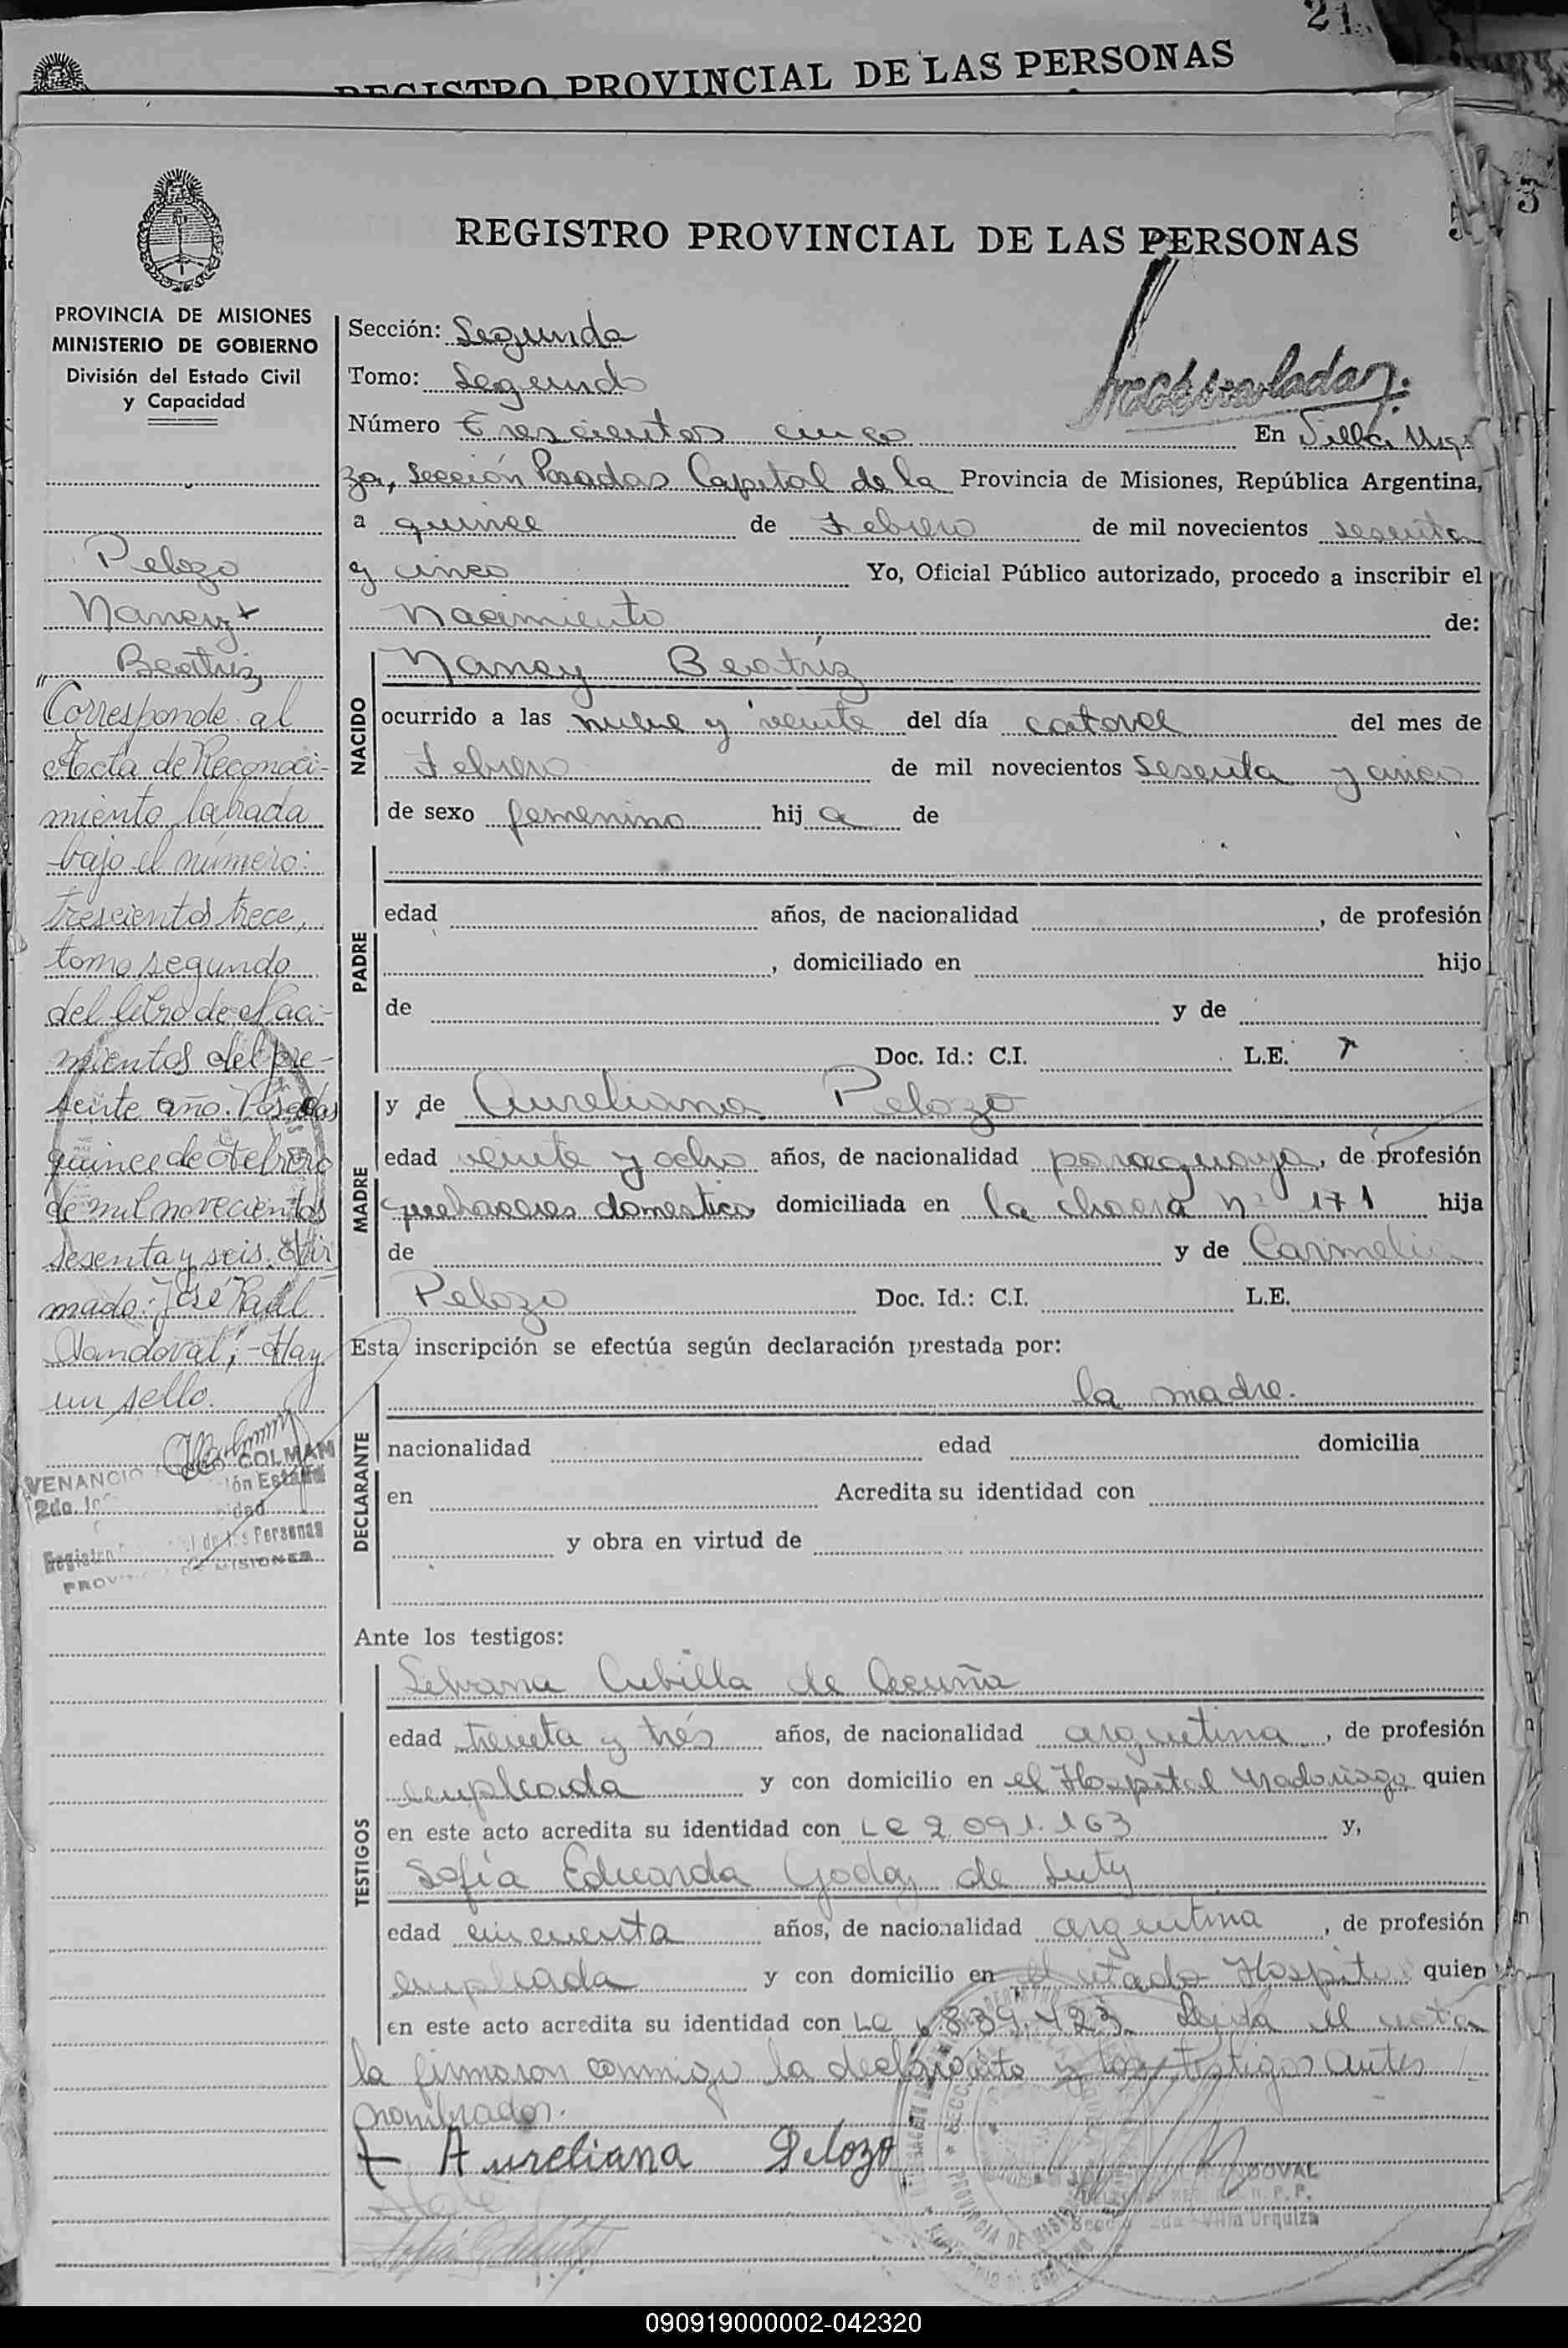 21
REGISTRO PROVINCIAL DE LAS PERSONAS
5
3
REGISTRO PROVINCIAL DE LAS PERSONAS
PROVINCIA DE MISIONES
MINISTERIO DE GOBIERNO
División del Estado Civil
y Capacidad
Pelozo
Nancy +
Beatriz
"Corresponde al
Acta de Reconoci-
miento labrada
bajo el número:
trescientos trece,
tomo segundo
del libro de Naci-
mientos del pre-
sente año. Posadas
quince de Febrero
de mil novecientos
sesenta y seis. Fir
mado: José Raúl
Sandoval", - Hay
un sello.
VENANCIO COLMAN
2do.
Registro de las Personas
MISIONES
Sección: Segunda
Tomo: Segundo
Número Trescientos cinco En Villa Urqui
za, Sección Posadas Capital de la Provincia de Misiones, República Argentina,
a quince de Febrero de mil novecientos sesenta
y cinco Yo, Oficial Público autorizado, procedo a inscribir el
Nacimiento de:
NACIDO
Nancy Beatriz
ocurrido a las nueve y veinte del día catorce del mes de
Febrero de mil novecientos Sesenta y cinco
de sexo femenino hij a de
PADRE
edad años, de nacionalidad , de profesión
, domiciliado en hijo
de y de
Doc. Id.: C.I. L.E.
MADRE
y de Aureliana Pelozo
edad veinte y ocho años, de nacionalidad paraguaya, de profesión
quehaceres domestico domiciliada en la chacra nº 171 hija
de y de Carmelia
Pelozo Doc. Id.: C.I. L.E.
Esta inscripción se efectúa según declaración prestada por:
DECLARANTE
la madre.
nacionalidad edad domicilia
en Acredita su identidad con
y obra en virtud de
Ante los testigos:
TESTIGOS
Cubilla de Acuña
edad treinta y trés años, de nacionalidad argentina, de profesión
empleada y con domicilio en el Hospital Madariaga quien
en este acto acredita su identidad con LC 2.091.163 y,
Sofía Eduarda Godoy de
edad cincuenta años, de nacionalidad argentina, de profesión
empleada y con domicilio en el citado Hospital quien
en este acto acredita su identidad con LC 6.839.423. Leida el acta
la firmaron conmigo la declarante y los testigos antes
nombrados.
Aureliana Pelozo
SANDOVAL
Villa Urquiza
090919000002-042320